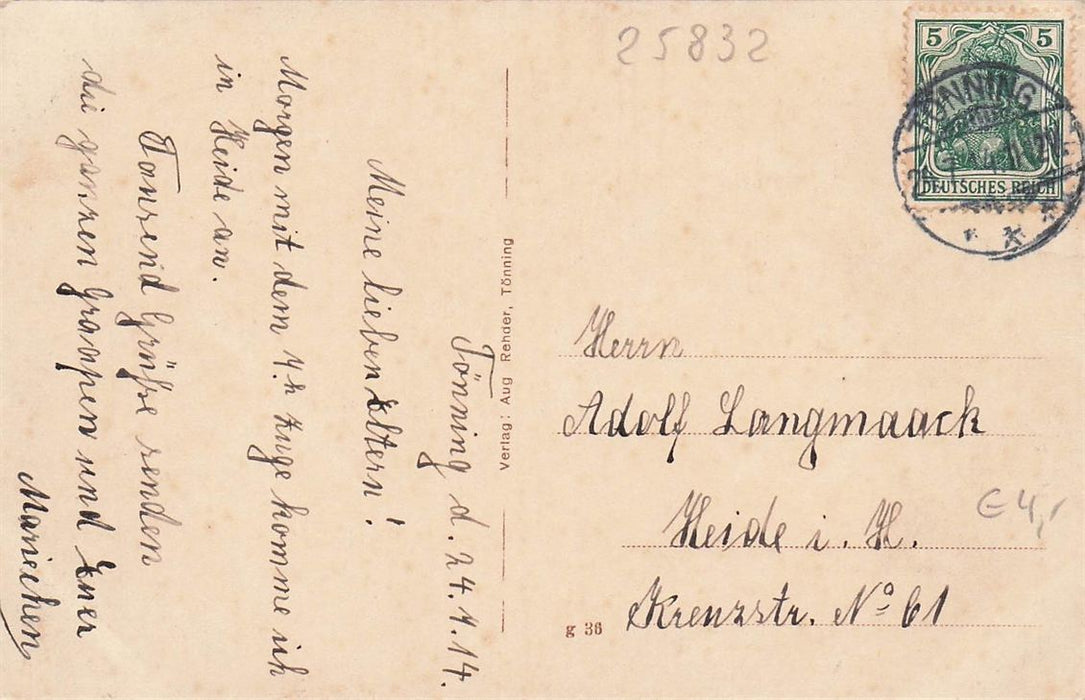 25832
5 5
TÖNNING
DEUTSCHES REICH
Tönning d. 24.4.14.
Meine lieben Eltern!
Morgen mit dem 4.h Zuge komme ich
in Heide an.
Tausend Grüße senden
die ganzen Graapen und Euer
Mariechen
Verlag: Aug Rehder, Tönning
Herrn
Adolf Langmaack
Heide i. H.
Kreuzstr. No 61
€ 4,-
g 36